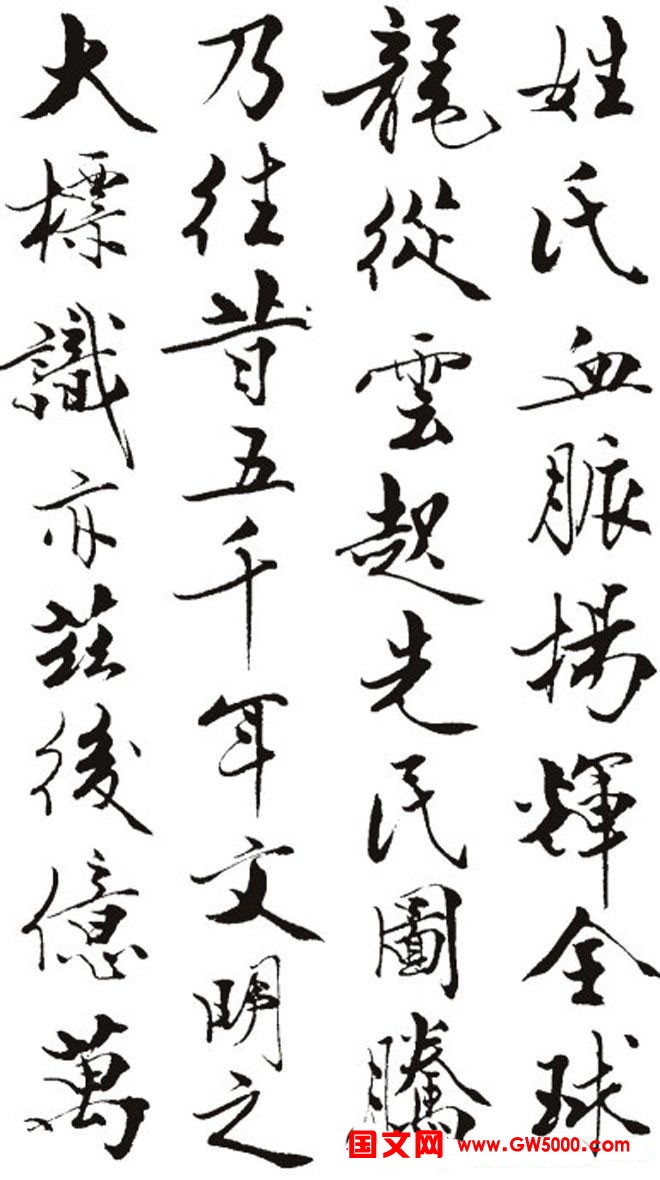 姓氏血脈揚輝全球
龍從雲起先民圖騰
乃往昔五千年文明之
大標識亦茲後億萬
国文网 www.GW5000.com